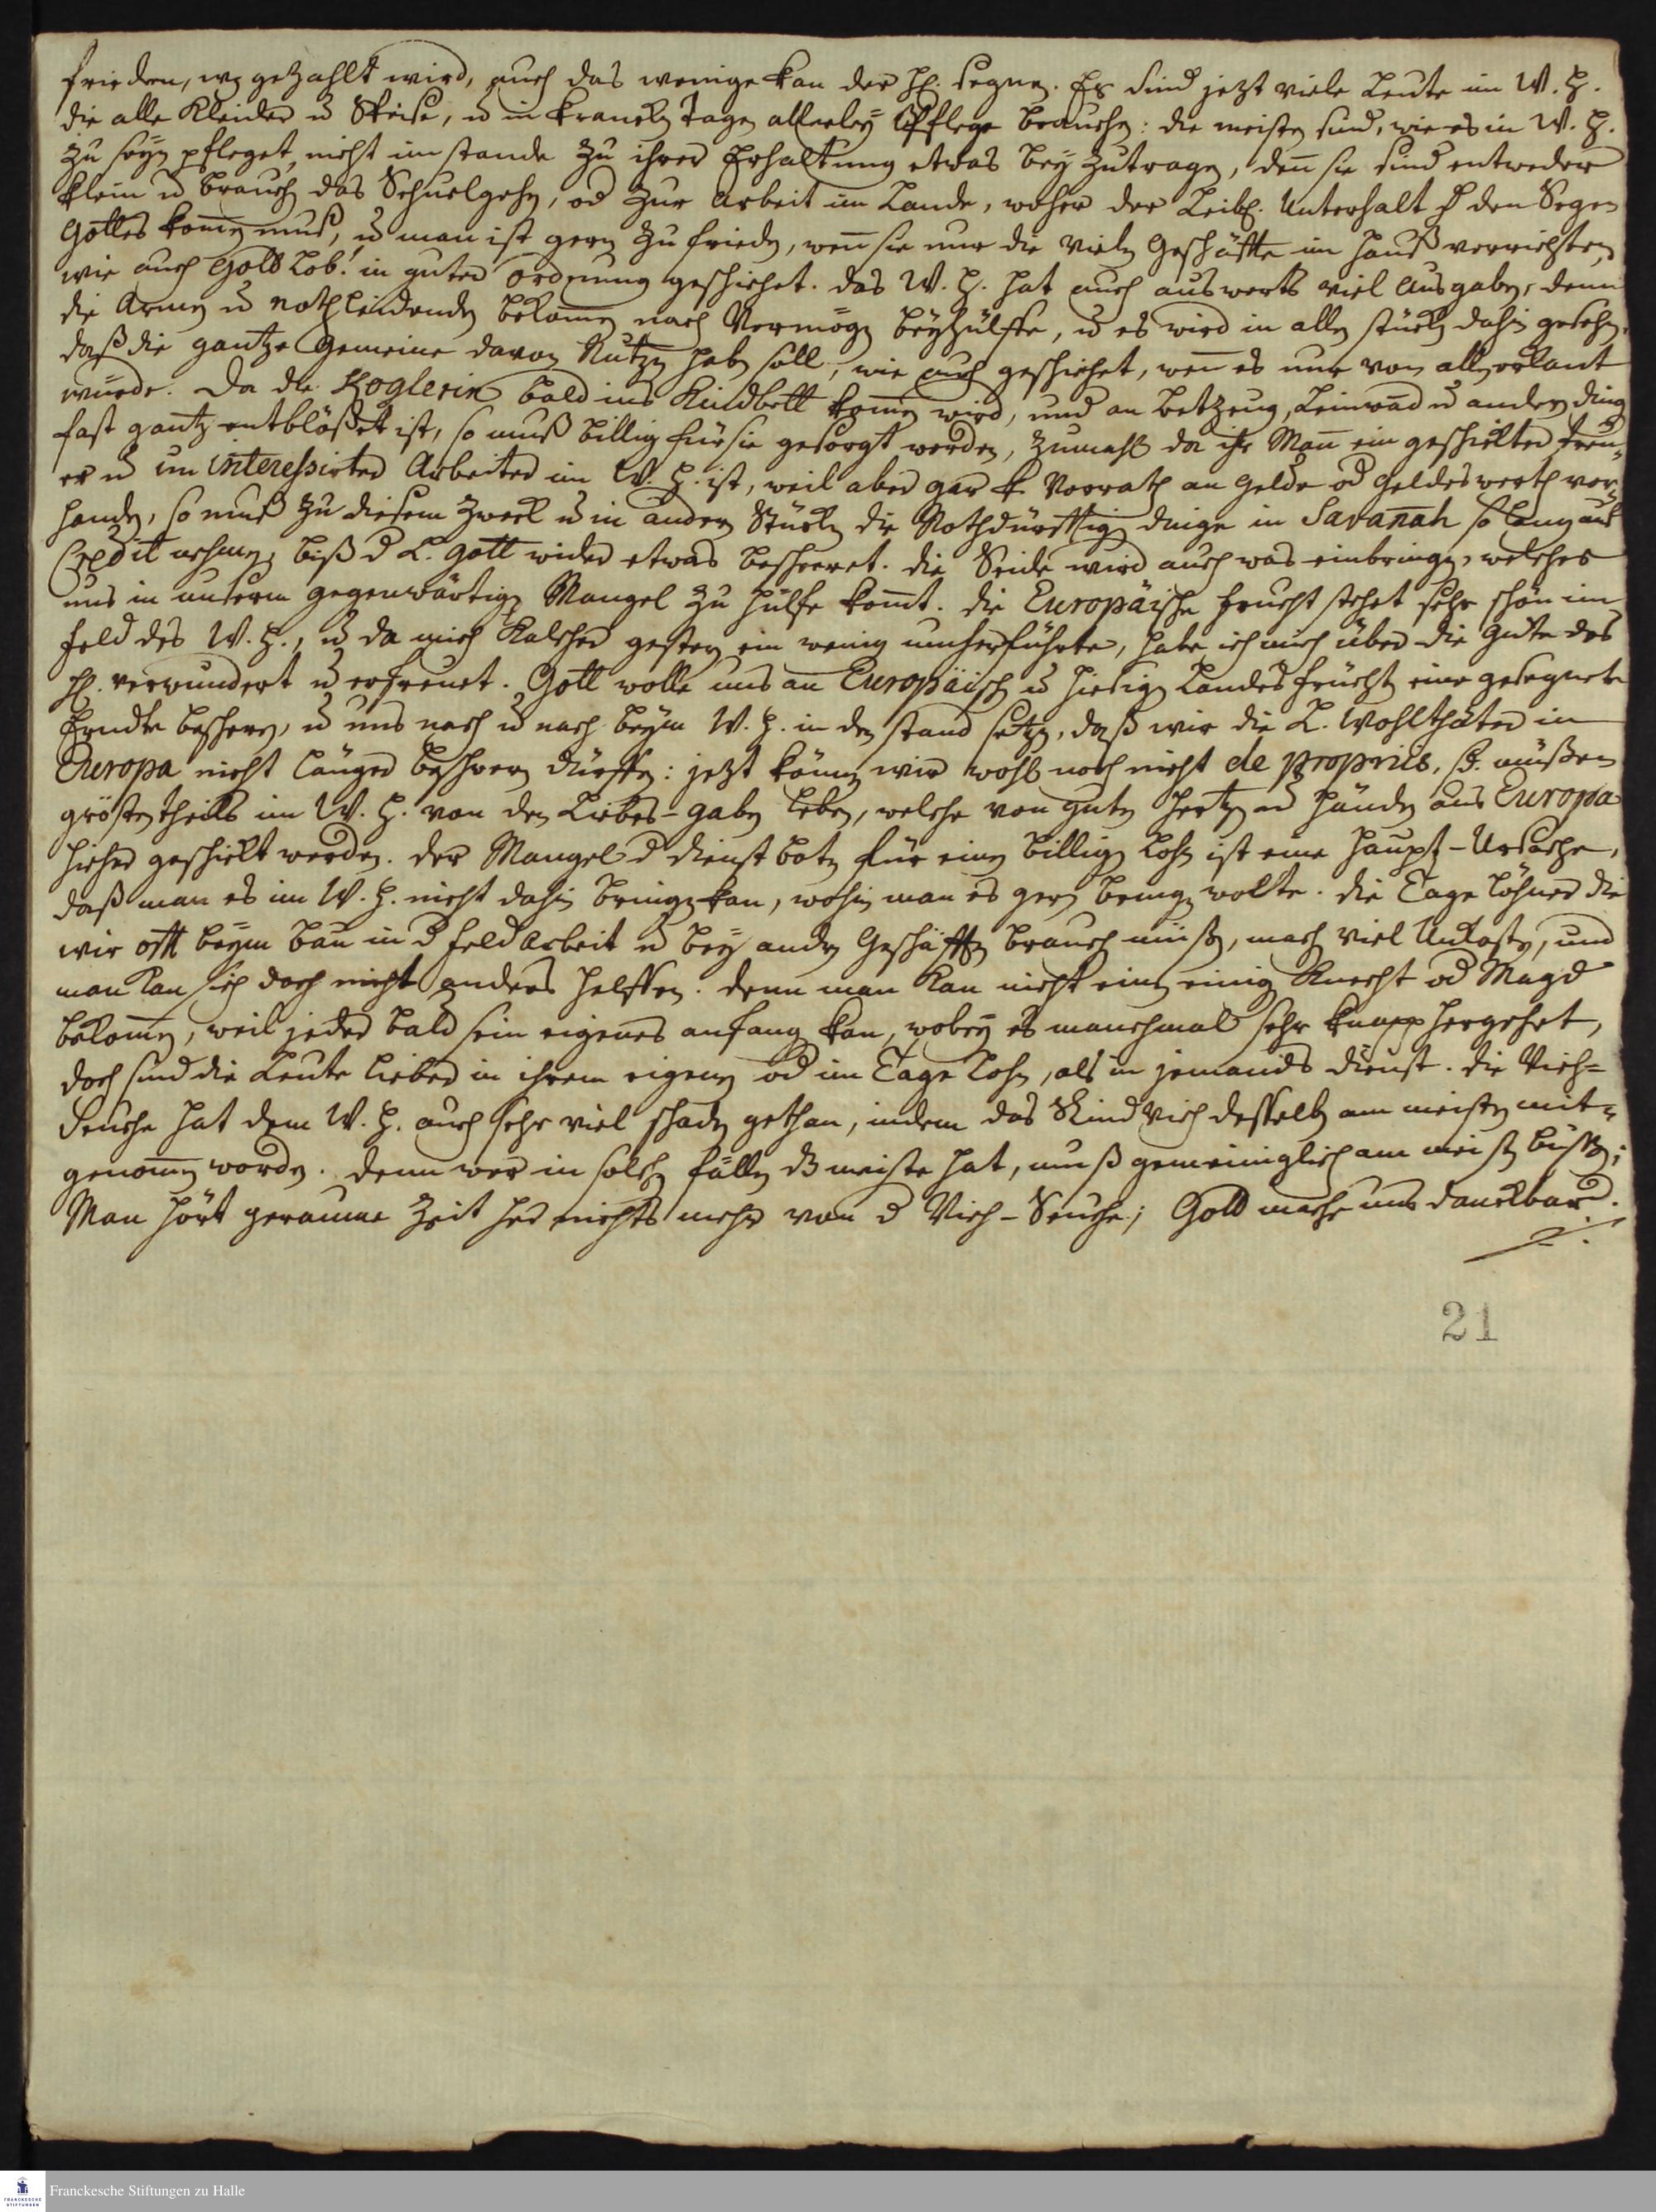 frieden, wz gezahlt wird, auch das wenige kan der HErr segnen. Es sind jezt viele Leute im W. H.
die alle Kleider u Speise, u in krancken Tagen allerley Pflege brauchen: die meisten sind, wie es in W. H.
zu seyn pfleget, nicht im stande zu ihrer Erhaltung etwas bey zutragen, deñ sie sind entweder
klein u brauchen das Schuelgehen, od zur Arbeit im Lande, woher der Leibl. Unterhalt d den Segen
Gottes kom̃en muß, u man ist gern zu frieden, weñ sie nur die vielen Geschäffte im Hauß verrichten,
wie auch Gott Lob! in guter ordnung geschiehet. das W. H. hat auch auswerts viel Ausgaben, denn
die Armen u nothleidenden bekom̃en nach Vermögen beyhülffe, u es wird in allen stücken dahin gesehen,
daß die gantze Gemeine davon Nutzen haben soll, wie auch geschiehet, weñ es nur von allen erkant
würde. Da die Koglerin bald ins Kindbett kom̃en wird, und an Betzeug, Leinwad u andern dingen
fast gantz entblößet ist, so muß billig für sie gesorgt werden, zumahl da ihr Mañ ein geschickter treu-
er u un interessirter Arbeiter im W. H. ist, weil aber gar k. Vorrath an Gelde od Geldes werth vor-
handen, so muß zu diesem Zweck u in andern Stücken die Nothdürfftigen dinge in Savañah so lang auf
Credit nehmen, biß d L. Gott wider etwas bescheeret. die Seide wird auch was einbringen, welches
uns in unserm gegenwärtigen Mangel zu hülfe kom̃t. die Europäische frucht stehet sehr schön im
feld des W. H., u da mich Kalcher gestern ein wenig umherführte, habe ich mich über die Güte des
HErrn verwundert u erfreuet. Gott wolle uns an Europäischen u hiesigen Landes früchten eine gesegnete
Erndte bescheren, u uns nach u nach beym W. H. in den stand setzen, daß wir die L. Wohlthäter in
Europa nicht länger beschweren dürffen: jezt können wir wohl noch nicht de propriis, s. müßen
grösten theils im W. H. von den Liebes-gaben leben, welche von guten Hertzen u Händen aus Europa
hieher geschickt werden. der Mangel d dienstboten für einen billigen Lohn ist eine Haupt-Ursache,
daß man es im W. H. nicht dahin bringen kan, wohin man es gern bringen wolte. die Tage löhner die
wir offt beym bau in d feld Arbeit u bey andern Geschäfften brauchen müßen, machen viel Unkosten, und
man kan sich doch nicht anders helffen. denn man kan nicht einen einigen Knecht od Magd
bekom̃en, weil jeder bald sein eigenes anfangen kan, wobey es manchmal sehr knapp hergehet,
doch sind die Leute lieber in ihrem eigenen od im Tage Lohn, als in jemands dienst. die Vieh=
Seuche hat dem W. H. auch sehr viel schaden gethan, indem das Rind Vieh desselben am meisten mit-
genom̃en worden. denn wer in solchen fällen ds meiste hat, muß gemeiniglich am meisten büßen;
Man hört geraume Zeit her nichts mehr von d Vieh-Seuche; Gott mache uns danckbar.
21
Franckesche Stiftungen zu Halle